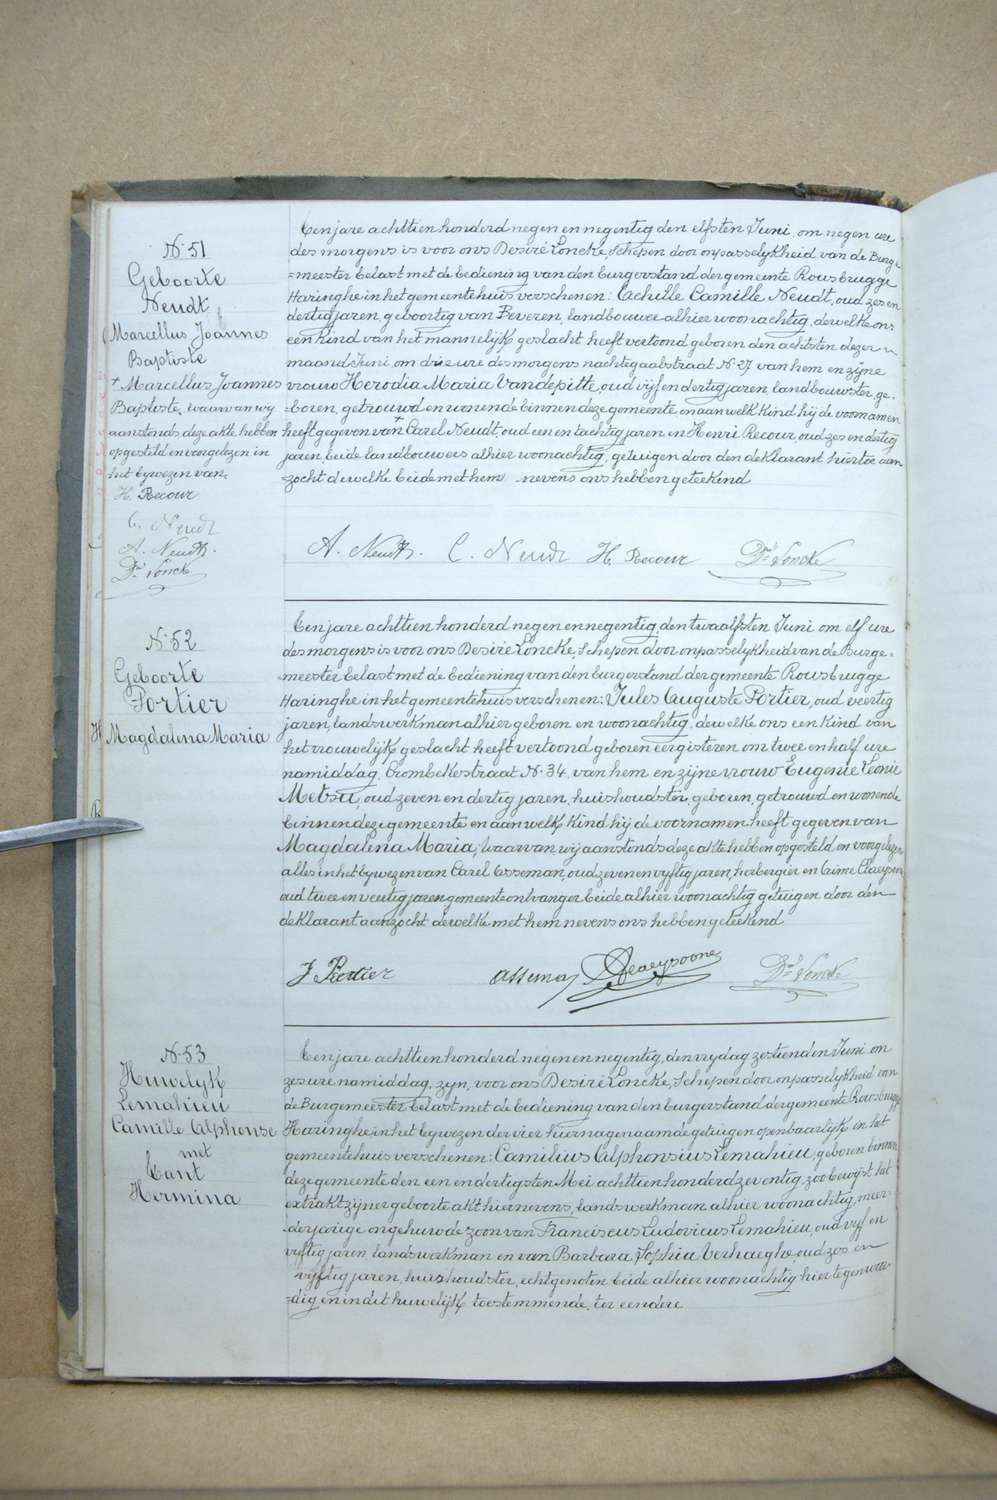 N° 51
Geboorte
Neudt
Marcellus Joannes
Baptiste
+ Marcellus Joannes
Baptiste, waarvan wy
aanstonds deze akte hebben
opgesteld en voorgelezen in
het bywezen van=
H. Recour
C. Neudt
A. Neudt.
Dré Loncke
Een jare achttien honderd negen en negentig den elfsten Juni, om negen ure
des morgens is voor ons Desiré Loncke, Schepen door onpasselykheid van de Burge
=meester belast met de bediening van den burgerstand der gemeente Rousbrugge
Haringhe in het gemeentehuis verschenen: Achille Camille Neudt, oud zes en
dertig jaren, geboortig van Beveren, landbouwer alhier woonachtig, dewelke ons
een kind van het mannelijk geslacht heeft vertoond geboren den achtsten dezer
maand Juni om drie ure des morgens nachtegaalstraat N° 27 van hem en zyne
vrouw Herodia Maria Vandepitte, oud vijf en dertig jaren, landbouwster, ge=
=boren, getrouwd en wonende binnen deze gemeente en aan welk kind hij de voornamen
heeft gegeven van + Carel Neudt, oud een en tachtig jaren en Henri Recour, oud zes en dertig
jaren beide landbouwers alhier woonachtig, getuigen door den deklarant hiertoe aan
=zocht dewelke beide met hem nevens ons hebben geteekend
A. Neudt. C. Neudt H. Recour Dré Loncke
N° 52
Geboorte
Fortier
Magdalena Maria
Een jare achttien honderd negen en negentig, den twaalfsten Juni om elf ure
des morgens is voor ons Desiré Loncke, Schepen door onpasselykheid van de Burge=
meester belast met de bediening van den burgerstand der gemeente Rousbrugge
Haringhe in het gemeentehuis verschenen: Jules Auguste Fortier, oud veertig
jaren, landswerkman alhier geboren en woonachtig, dewelke ons een kind van
het vrouwelijk geslacht heeft vertoond geboren eergisteren om twee en half ure
namiddag, Crombekestraat N° 34, van hem en zijne vrouw Eugenie Leonie
Metsu, oud zeven en dertig jaren, huishoudster, geboren, getrouwd en wonende
binnen deze gemeente en aan welk kind hij de voornamen heeft gegeven van
Magdalena Maria; waarvan wij aanstonds deze akte hebben opgesteld en voorgelezen
alles in het bywezen van Carel Asseman, oud zeven en vyftig jaren, herbergier en Crimo Claeysoone
oud twee en veertig jaren gemeenteontvanger beide alhier woonachtig getuigen door den
deklarant aanzocht dewelke met hem nevens ons hebben geteekend
J Fortier asseman Claeysoone Dré Loncke
N° 53
Huwelijk
Lemahieu
Camille Alphonse
met
Cant
Hermina
Een jare achttien honderd negen en negentig, den vrydag zestienden Juni om
zes ure namiddag, zyn, voor ons Desiré Loncke, Schepen door onpasselykheid van
de Burgemeester belast met de bediening van den burgerstand der gemeente Rousbrugge
Haringhe, in het bywezen der vier hierna genaamde getuigen openbaarlijk en het
gemeentehuis verschenen: Camilius Alphonsius Lemahieu, geboren binnen
deze gemeente den een en dertigsten Mei achttien honderd zeventig, zoo bewyst het
extrakt zyner geboorte akt hiernevens, landswerkman alhier woonachtig, meer=
derjarige ongehuwde zoon van Franciscus Ludovicus Lemahieu, oud vyf en
vyftig jaren, landswerkman en van Barbara Sophia Verhaeghe oud zes en
vyftig jaren, huishoudster, echtgenoten beide alhier woonachtig hier tegenwoor
=dig en in dit huwelijk toestemmende, ter eendere